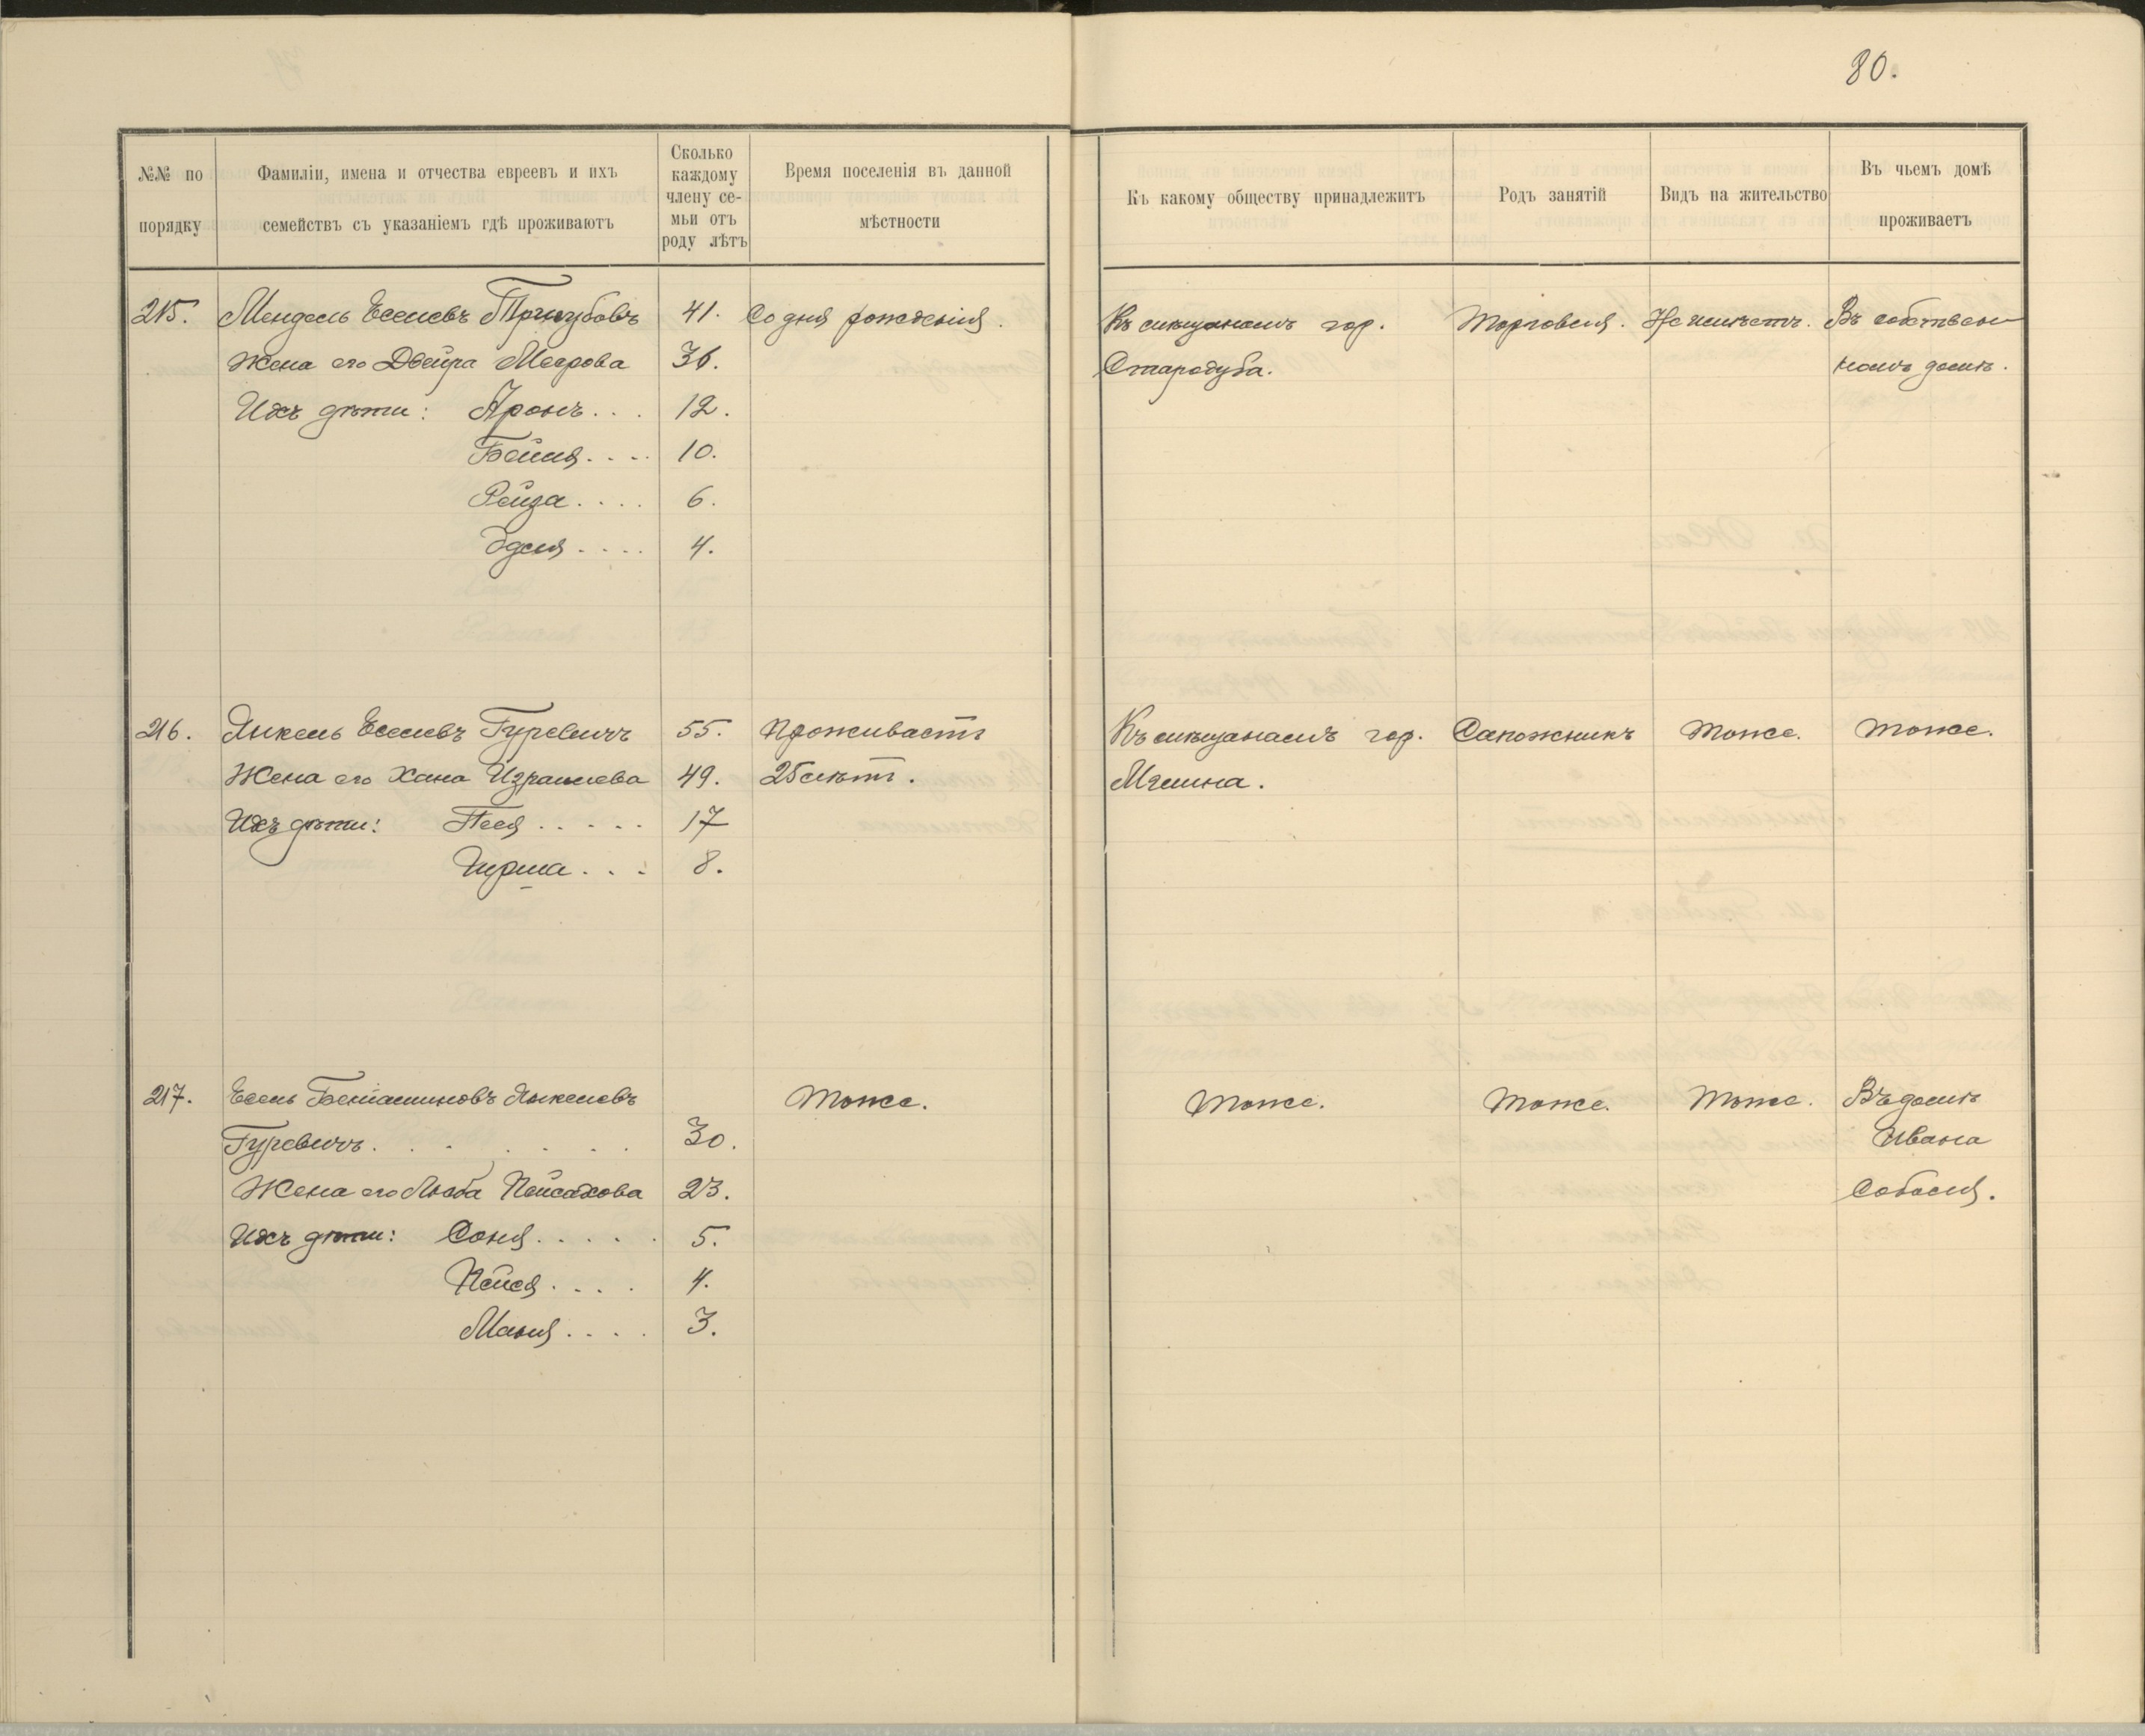 80.
№№ по порядку
Фамиліи, имена и отчества евреевъ и ихъ семействъ съ указаніемъ гдѣ проживаютъ
Сколько каждому члену се-мьи отъ роду лѣтъ
Время поселенія въ данной мѣстности
Къ какому обществу принадлежитъ
Родъ занятій
Видъ на жительство
Въ чьемъ домѣ проживаетъ
215. Мендель Еселевъ Тризубовъ 41. Со дня рожденія. Къ мѣщанамъ гор. Торговля. Не имѣетъ. Въ собствен
Жена его Двейра Меерова 36. Стародуба. номъ домѣ.
Ихъ дѣти: Аронъ... 12.
Бейля.... 10.
Рейза.... 6.
Эдля.... 4.
216. Янкель Еселевъ Гуревичъ 55. Проживаетъ Къ мѣщанамъ гор. Сапожникъ Тоже. Тоже.
Жена его Хана Израилева 49. 25 лѣтъ. Мглина.
Ихъ дѣти: Песя..... 17
Гирша... 8.
217. Есель Беніаминовъ Янкелевъ Тоже. Тоже. Тоже. Тоже. Въ домѣ
Гуревичъ...... 30. Ивана
Жена его Люба Пейсахова 23. Соболя.
Ихъ дѣти: Соня..... 5.
Пейся.... 4.
Маня.... 3.